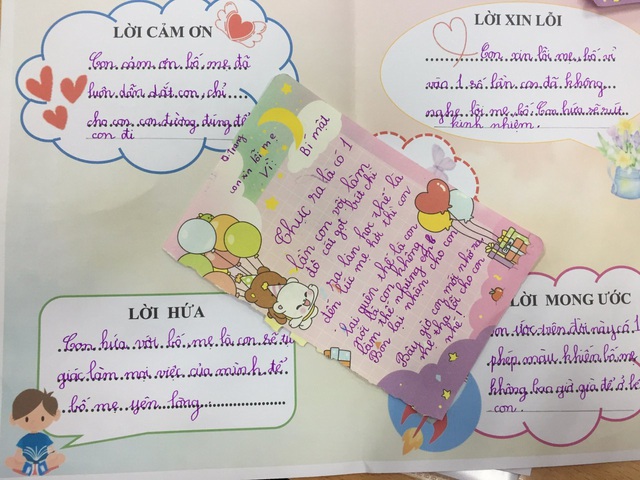 LỜI CẢM ƠN
Con cảm ơn bố, mẹ đã
luôn dẫn dắt con, chỉ
cho con con đường đúng để
con đi
LỜI XIN LỖI
Con xin lỗi mẹ, bố vì
vào 1 số lần con đã không
nghe lời mẹ, bố. Con hứa sẽ rút
kinh nghiệm.
con xin lỗi mẹ
Vì:
Bí mật
Thực ra là có 1
lần con vô làm
đồ cái gọt bút chì
ra lần học thế là
đến lúc mẹ hỏi thì con
lại quên thế là con
nói là con không
làm thế nhưng
lại nhận cho con
Bây giờ con mới nhớ ra
thế tha lỗi cho con
nhé
LỜI HỨA
Con hứa với bố mẹ là con sẽ tự
giác làm mọi việc của mình để
bố mẹ yên lòng
LỜI MONG ƯỚC
on ước trên đời này có 1
phép màu khiến bố mẹ
không bao giờ già để ở b
con.